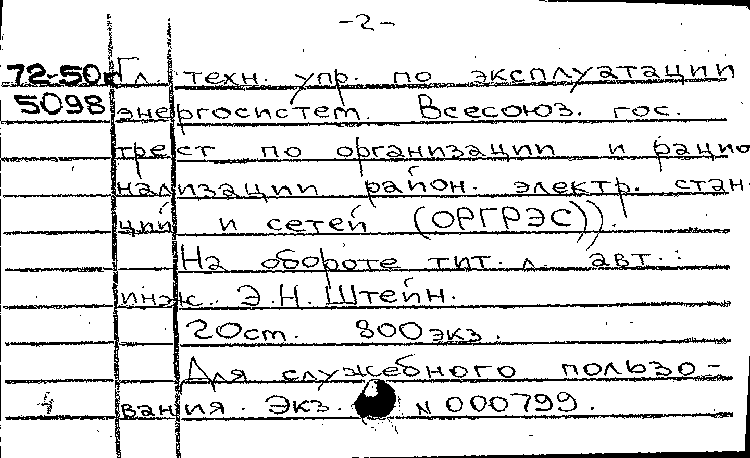 -2-
72-50г Гл. техн. упр. по эксплуатации
5098 энергосистем. Всесоюз. гос.
трест по организации и рацио
нализации район. электр. стан-
ций и сетей (ОРГРЭС)).
На обороте тит. л. авт.:
инж. Э.Н. Штейн.
20 ст. 800 экз.
Для служебного пользо-
4 вания. Экз. N 000799.